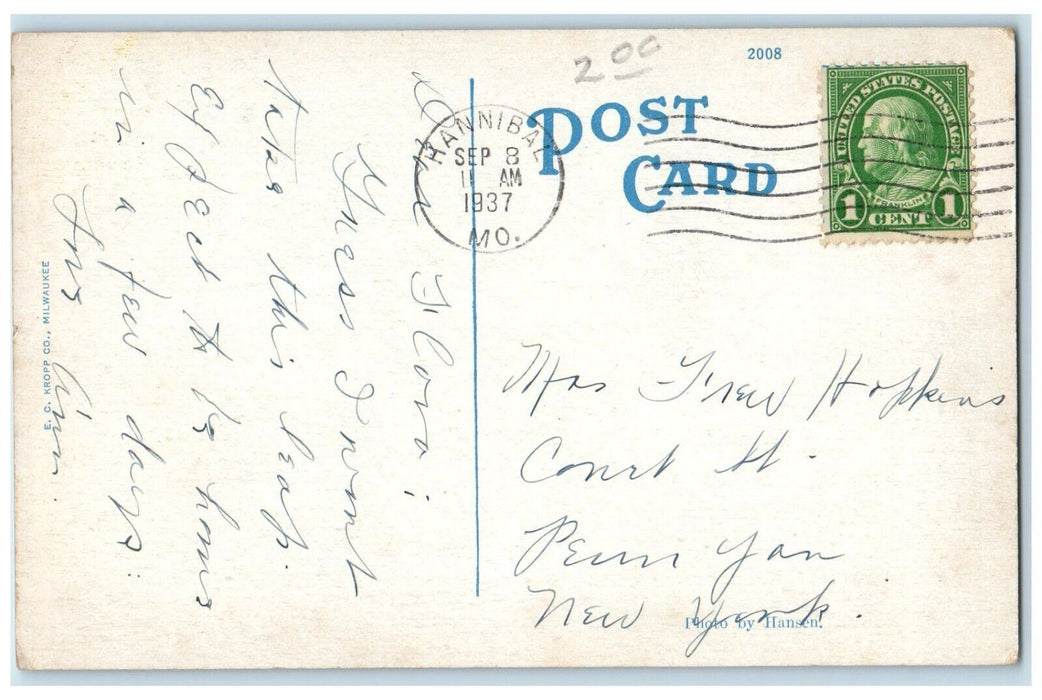 2.00
2008
POST
CARD
HANNIBAL
SEP 8
11 AM
1937
MO.
UNITED STATES POSTAGE
FRANKLIN
1 CENT 1
Dear Flora;
Guess I wont
take this leap.
Expect to be home
in a few days.
Ann.
E. C. KROPP CO., MILWAUKEE
Mrs Frew Hopkins
Court St.
Penn Yan
New York.
Photo by Hansen.